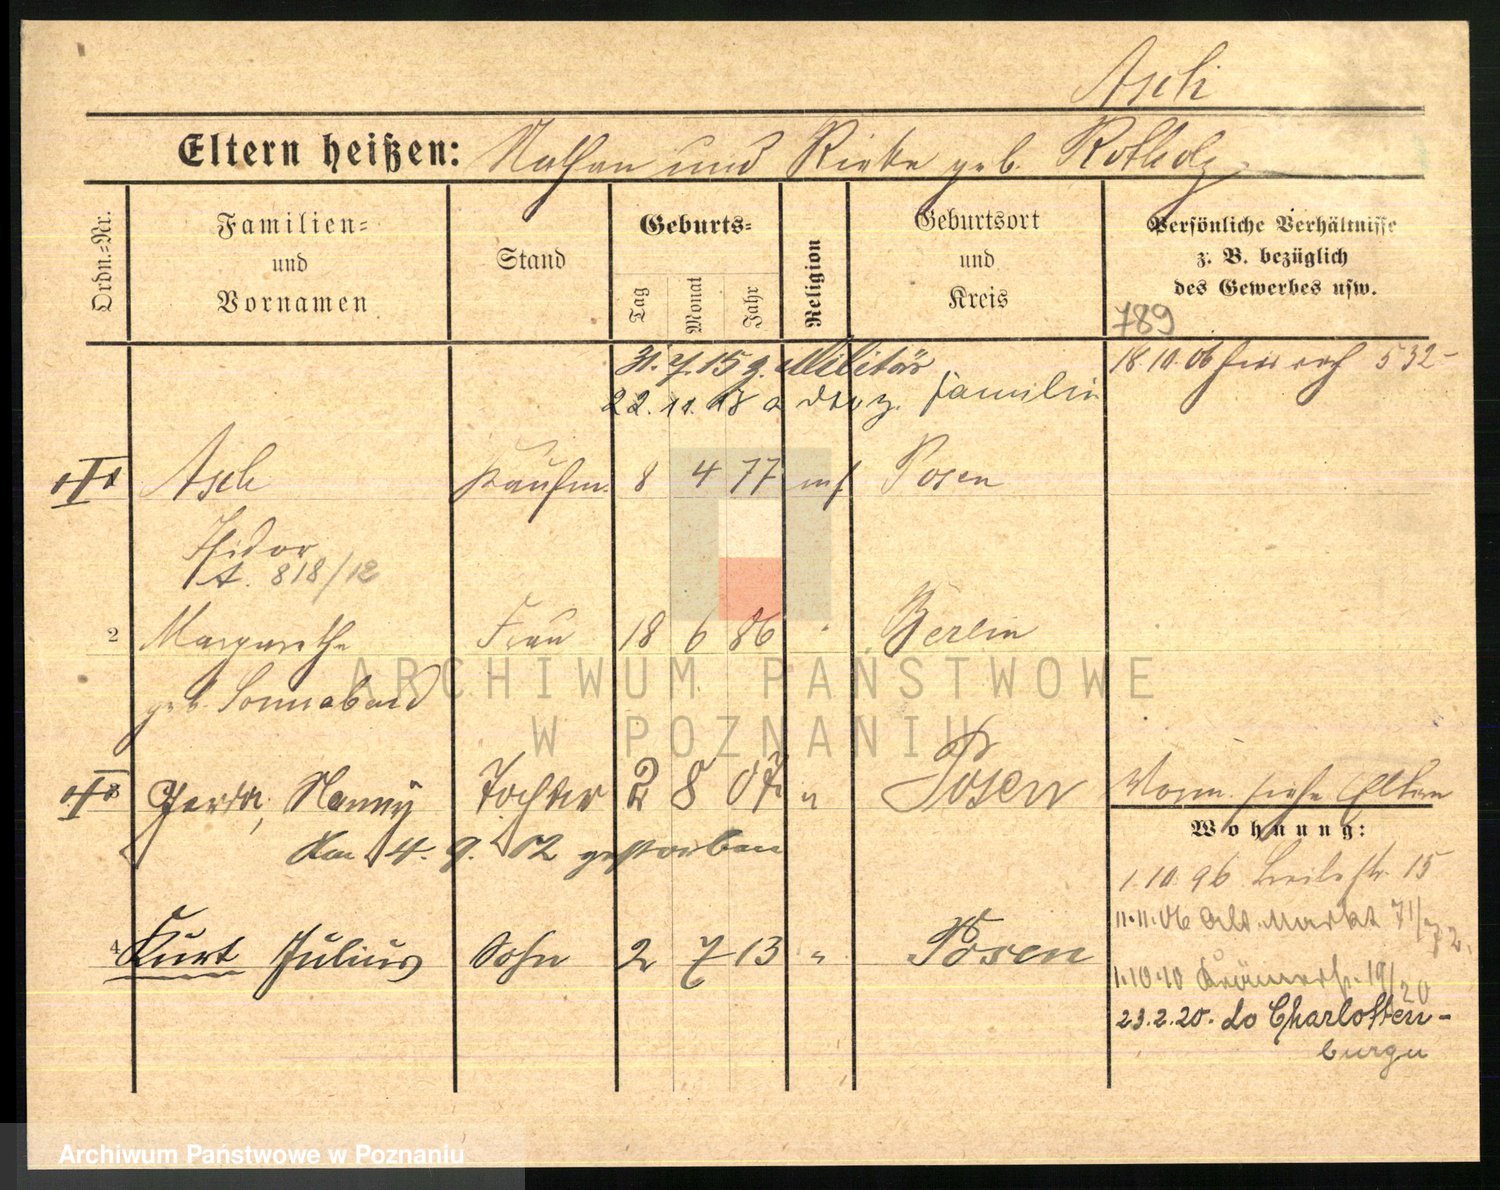 Asch
Eltern heißen: Nathan und Rieke geb. Rothholz
Ordn.-Nr.
Familien- und Vornamen
Stand
Geburts-
Tag
Monat
Jahr
Religion
Geburtsort und Kreis
Persönliche Verhältnisse
z. B. bezüglich
des Gewerbes usw.
789
31. 7. 15 z. Militär
18.10.06 532-
22. 11. 18 a d z. Familie
Asch Kaufm. 8 4 77 mos Posen
Isidor
A. 818/12
2 Margarethe Frau 18 6 86 " Berlin
geb. Sonnabend
Gerda, Nanny Tochter 2 8 07 " Posen
Am 4. 9. 12 gestorben
Vorm. siehe Eltern
Wohnung:
1.10.96 Breitestr. 15
11.11.06 Alt. Markt 71/72.
4 Kurt Julius Sohn 2 7 13 " Posen
1.10.10 Krämerstr. 19/20
23.2.20. do Charlotten-
burgu
ARCHIWUM PAŃSTWOWE
W POZNANIU
Archiwum Państwowe w Poznaniu